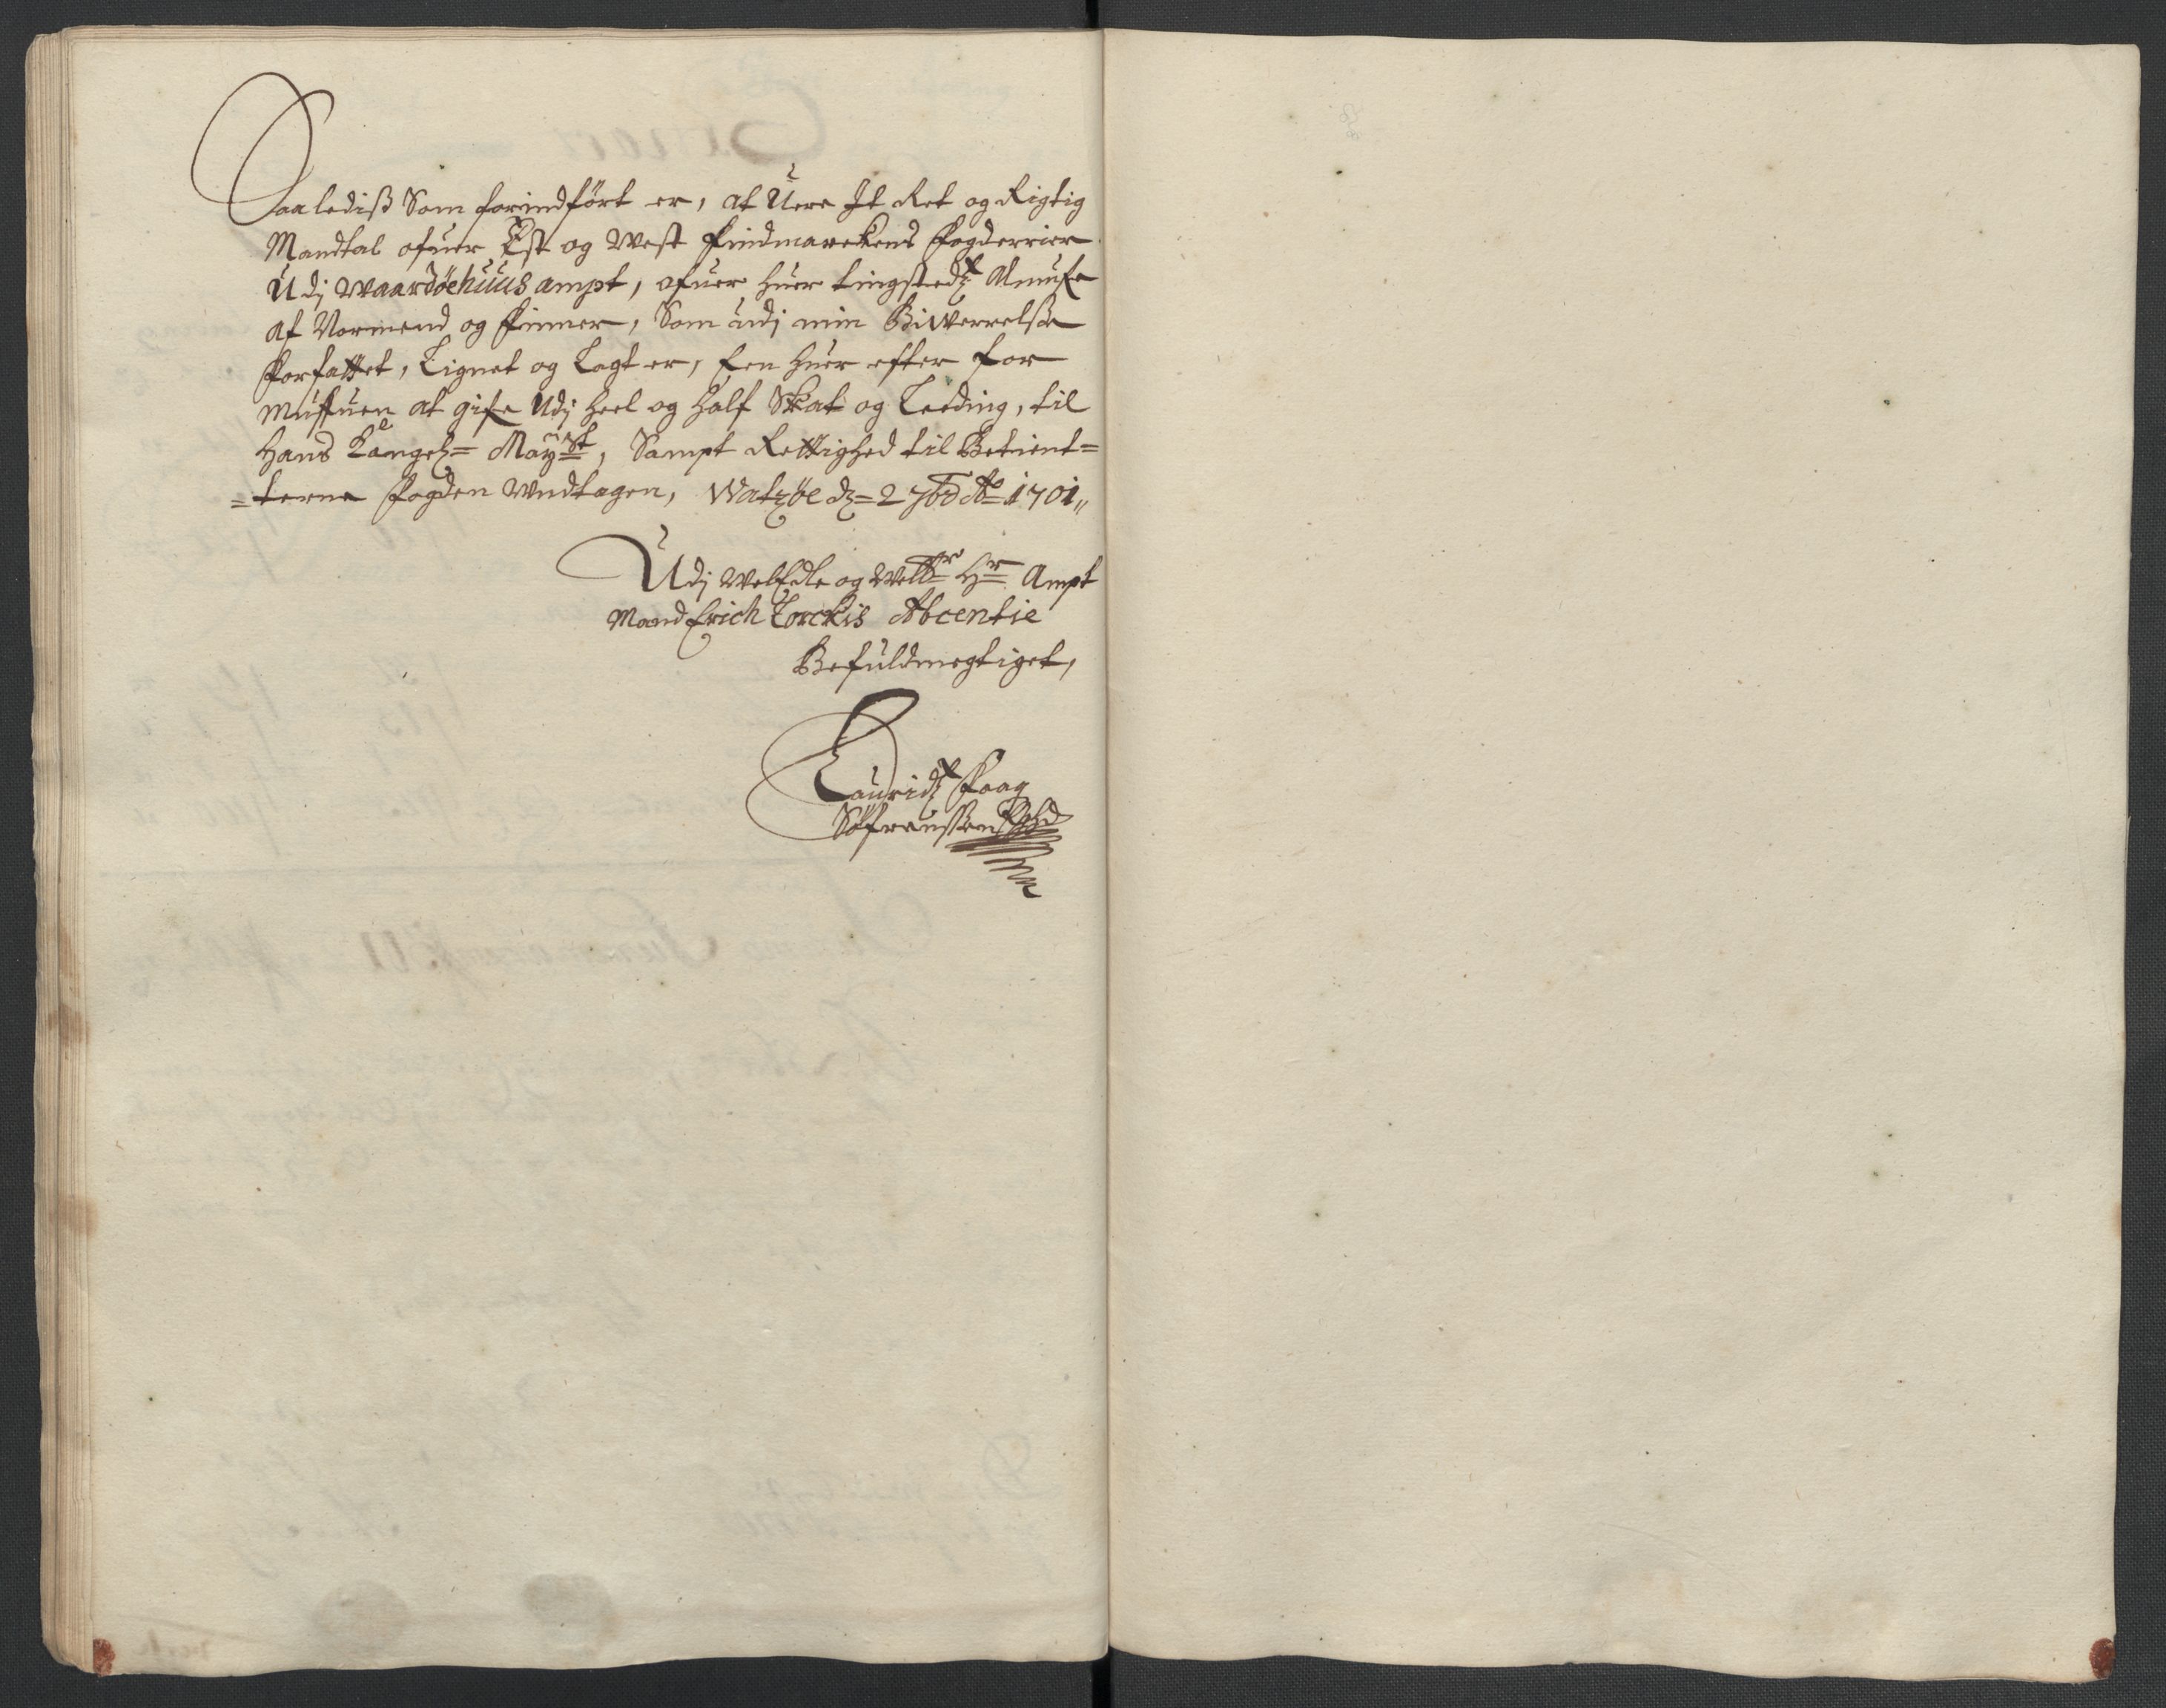 Saalediß Som forindført er, at Uere It Ret og Rigtig
Mandtal ofuer Øst og West Findmarckens Fogderrier
Udj Waardøehuus ampt, ofuer huer tingstedz Almufe
af Normend og Finner, Som udj min Biwerrelse
Forfattet, Lignet og Lagt er, Een huer efter for
muffuen at gife Udj heel og half Skat og Leeding, til
Hans Kongel= Mayst, Sampt Rettighed til Betient=
=terne Fogden Undtagen, Watzøe dz= 2 7br Ao 1701,,
Udj WelEdle og Hr Ampt
Mand Erich Lorckis Abcentie
Befuldmegtiget,
Lauridz Faag
Søfrenssen